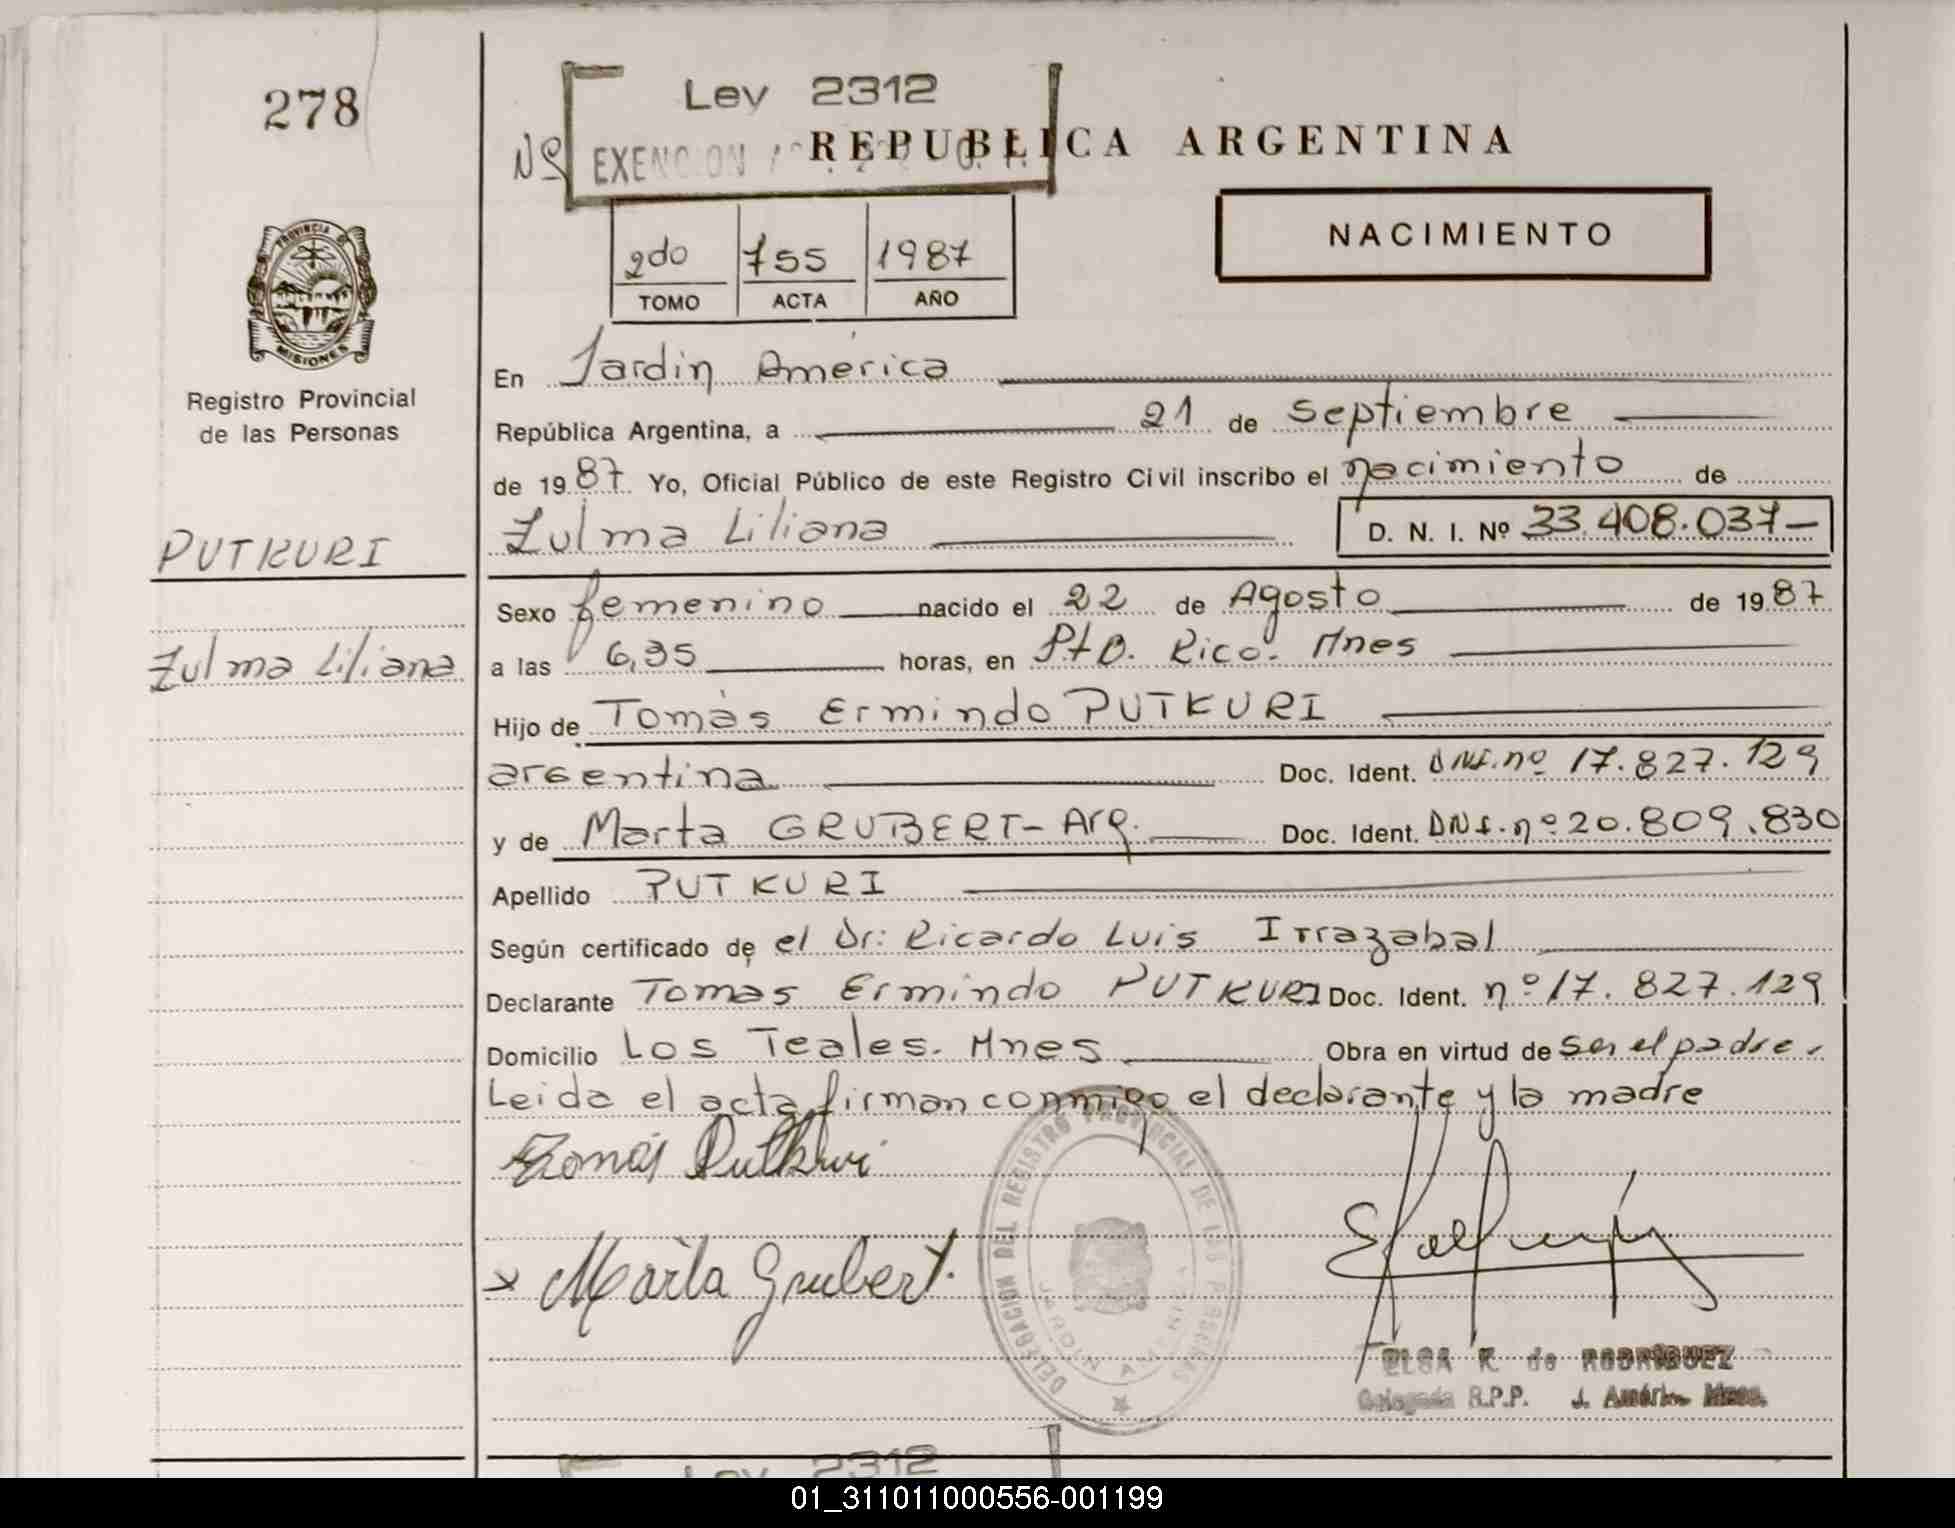 278
Ley 2312
Nº EXENCION
REPUBLICA ARGENTINA
NACIMIENTO
2do 755 1987
TOMO ACTA AÑO
PROVINCIA DE
MISIONES
Registro Provincial
de las Personas
PUTKURI
Zulma Liliana
En Jardin América
República Argentina, a 21 de Septiembre
de 1987 Yo, Oficial Público de este Registro Civil inscribo el nacimiento de
Zulma Liliana D. N. I. Nº 33.408.037-
Sexo femenino nacido el 22 de Agosto de 1987
a las 6,35 horas, en Pto. Rico. Mnes
Hijo de Tomás Ermindo PUTKURI
argentina Doc. Ident. DNI. nº 17.827.129
y de Marta GRUBERT- Arg. Doc. Ident. DNI. nº 20.809.830
Apellido PUTKURI
Según certificado de el Dr: Ricardo Luis Irrazabal
Declarante Tomas Ermindo PUTKURI Doc. Ident. nº 17.827.129
Domicilio Los Teales. Mnes Obra en virtud de ser el padre.
Leida el acta firman conmigo el declarante y la madre
Tomás Putkuri
x Marta Grubert.
DELEGACION DEL REGISTRO PROVINCIAL DE LAS PERSONAS
JARDIN AMERICA
ELSA R. de RODRIGUEZ
Delegada R.P.P. J. América Mnes.
Ley 2312
01_311011000556-001199